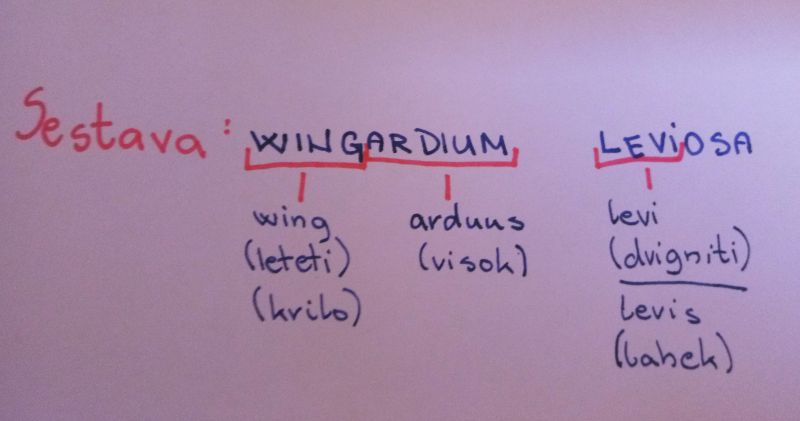 Sestava: WINGARDIUM LEVIOSA
wing arduus levi
(leteti) (visok) (dvigniti)
(krilo) levis
(lahek)